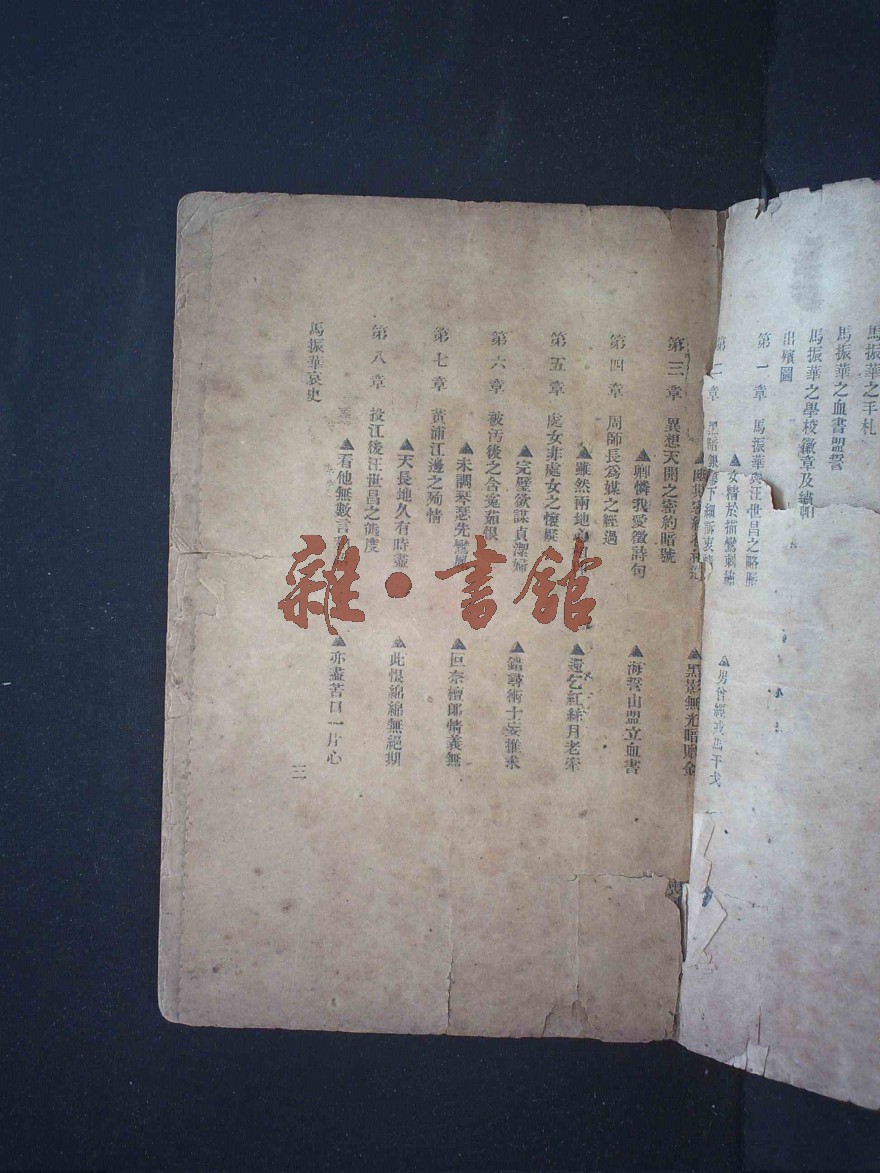 馬振華之手札
馬振華之血書盟誓
馬振華之學校徽章及
出殯圖
第一章 馬振華與汪世昌之略歷
▲女精於描鸞刺繡 ▲男曾經戎馬干戈
第二章 黑暗銀幕下細訴衷情
▲黑影無光暗贈金
第三章 異想天開之密約暗號
▲卿憐我愛徵詩句 ▲海誓山盟立血書
第四章 周師長爲媒之經過
▲雖然兩地 ▲還乞紅絲月老牽
第五章 處女非處女之懷疑
▲完璧欲謀貞潔婦 ▲錯尋術士妄推求
第六章 被汚後之含寃茹恨
▲未調琴瑟先鸞鳳 ▲叵奈檀郎情義無
第七章 黃浦江邊之殉情
▲天長地久有時盡 ▲此恨綿綿無絕期
第八章 投江後汪世昌之態度
▲看他無數言 ▲亦盡苦口一片心
馬振華哀史
三
雜·書館